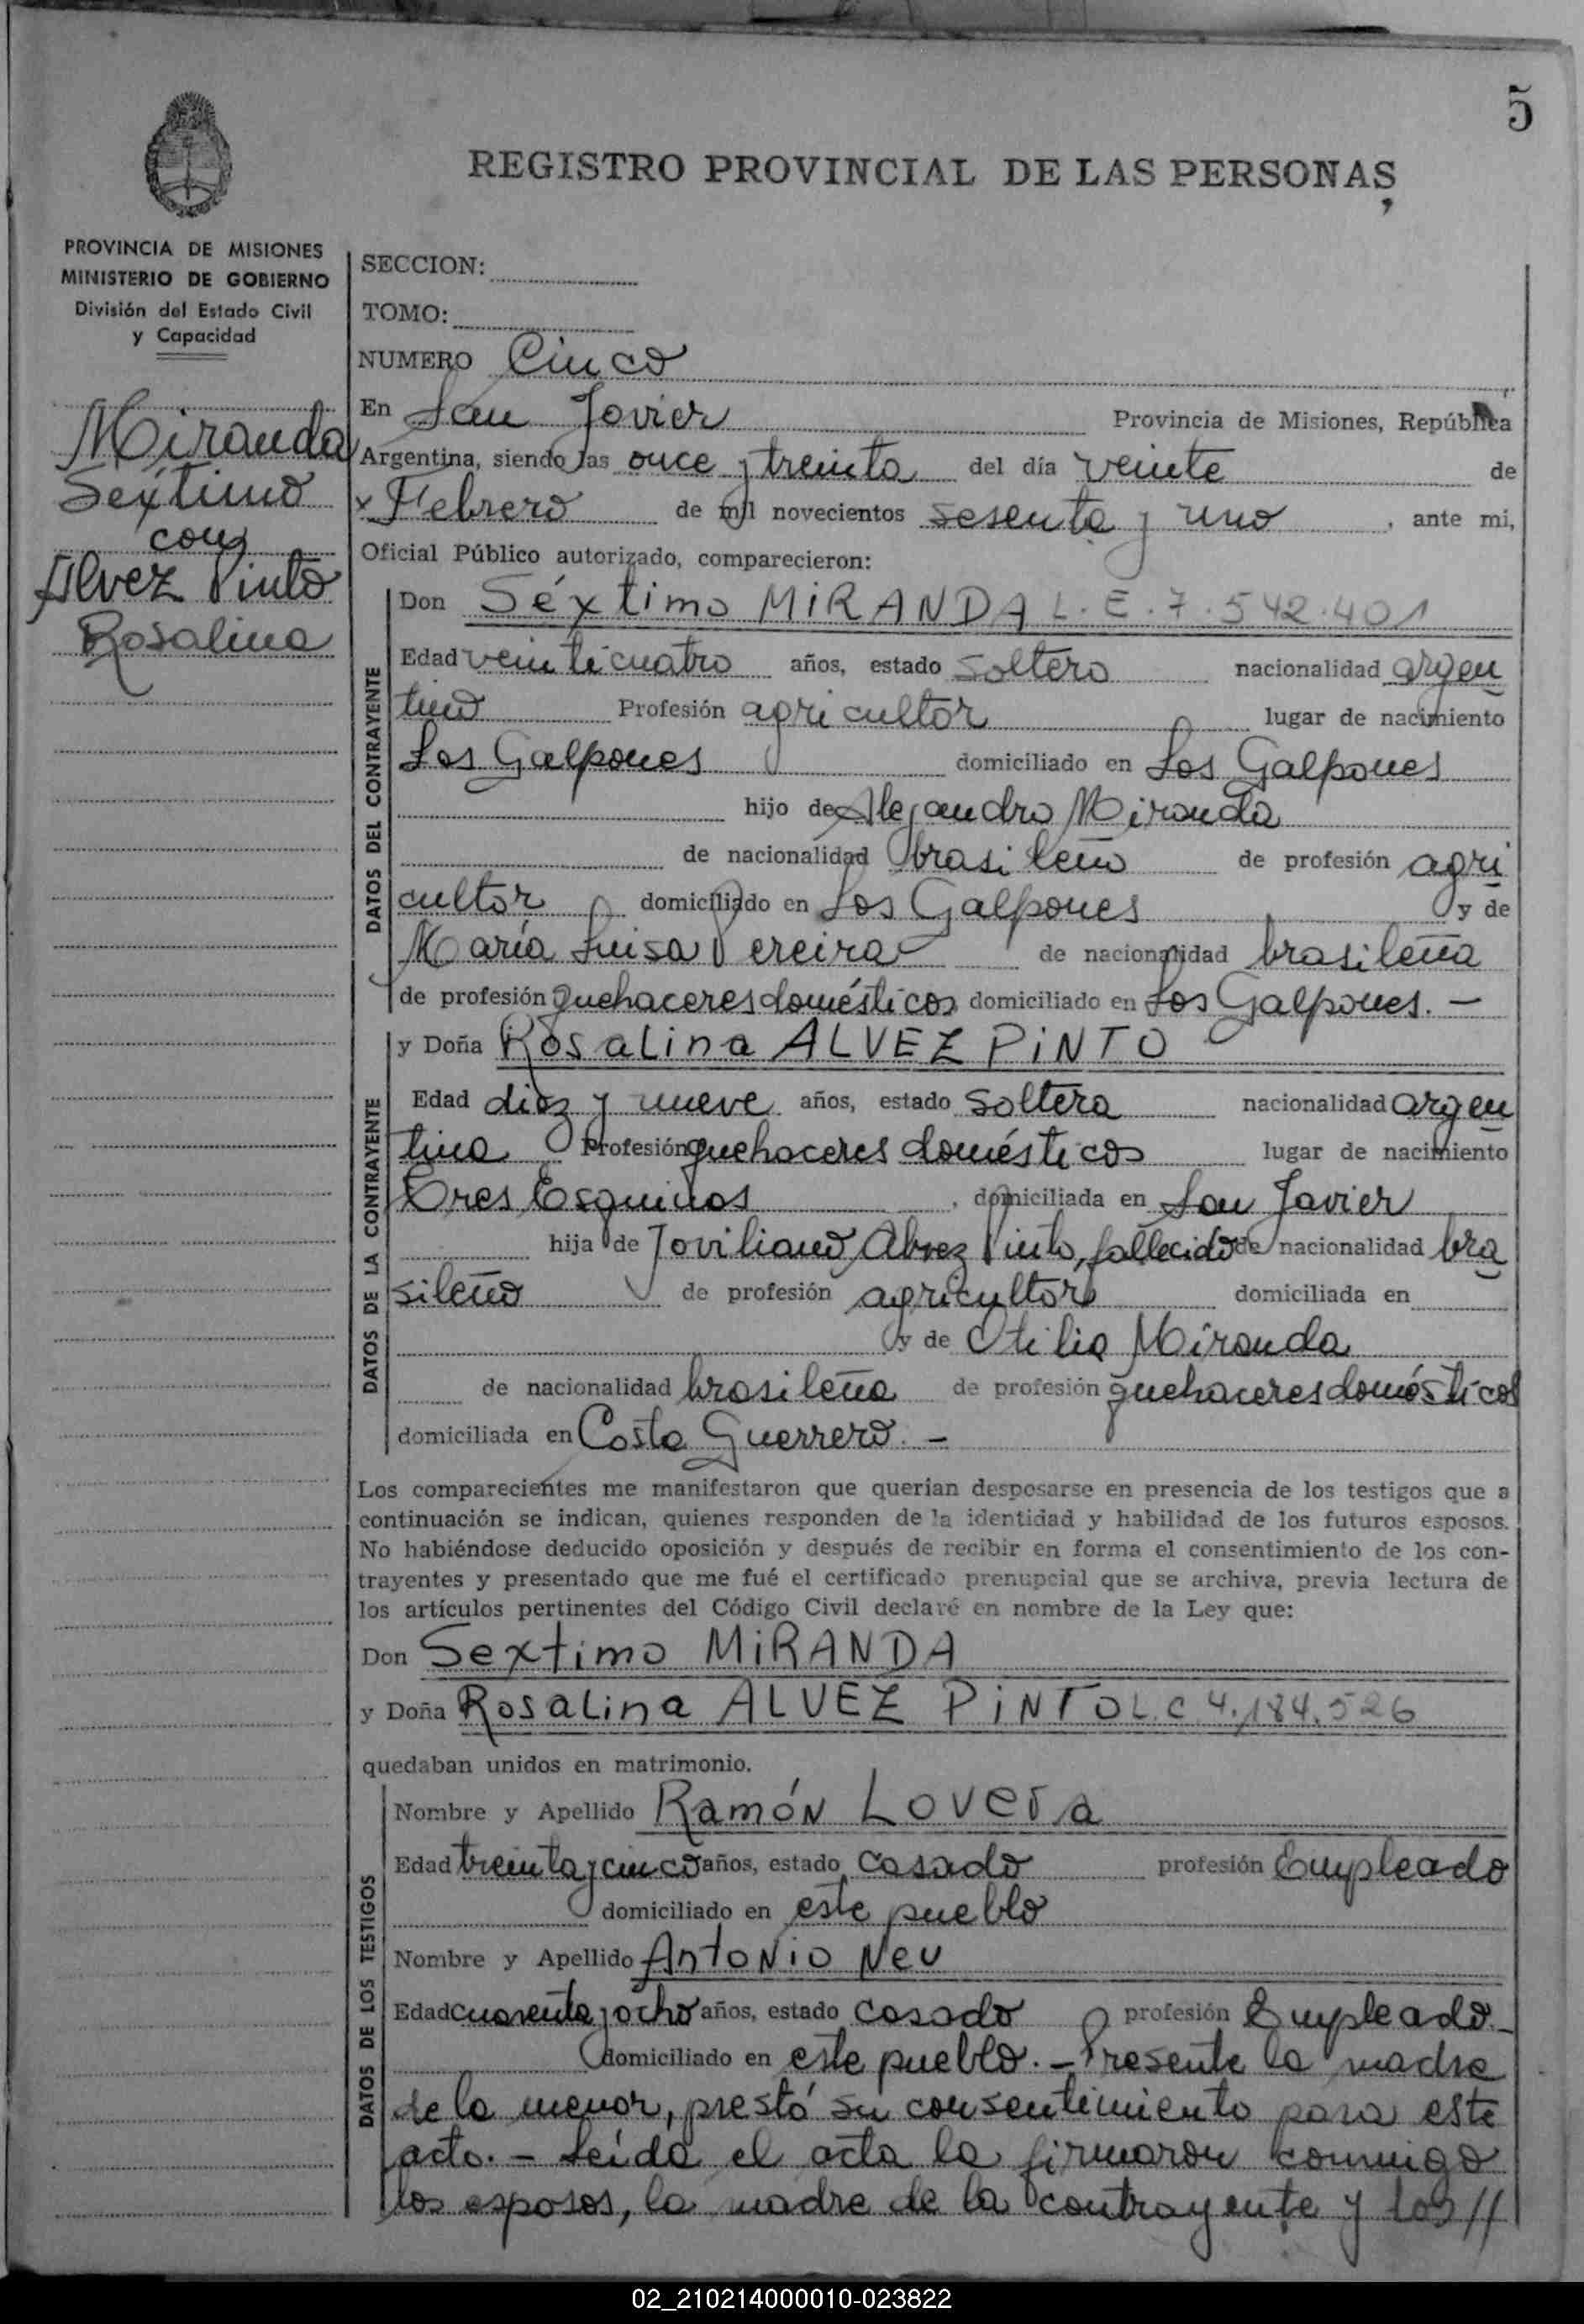 5
REGISTRO PROVINCIAL DE LAS PERSONAS
PROVINCIA DE MISIONES
MINISTERIO DE GOBIERNO
División del Estado Civil
y Capacidad
Miranda
Sextimo
con
Alvez Pinto
Rosalina
SECCION:
TOMO:
NUMERO Cinco
En San Javier Provincia de Misiones, República
Argentina, siendo las once y treinta del día veinte de
Febrero de mil novecientos sesenta y uno, ante mi,
Oficial Público autorizado, comparecieron:
DATOS DEL CONTRAYENTE
Don Séxtimo MIRANDA L. E. 7.542.401
Edad veinticuatro años, estado soltero nacionalidad argen
tino Profesión agricultor lugar de nacimiento
Los Galpones domiciliado en Los Galpones
hijo de Alejandro Miranda
de nacionalidad brasileño de profesión agri
cultor domiciliado en Los Galpones y de
María Luisa Pereira de nacionalidad brasileña
de profesión quehaceres domésticos domiciliado en Los Galpones. —
DATOS DE LA CONTRAYENTE
y Doña Rosalina ALVEZ PINTO
Edad diez y nueve años, estado soltera nacionalidad argen
tina Profesión quehaceres domésticos lugar de nacimiento
Tres Esquinas, domiciliada en San Javier
hija de Joviliano Alvez Pinto, fallecido de nacionalidad bra
sileño de profesión agricultor domiciliada en
y de Otilia Miranda
de nacionalidad brasileña de profesión quehaceres domésticos
domiciliada en Costa Guerrero. —
Los comparecientes me manifestaron que querían desposarse en presencia de los testigos que a
continuación se indican, quienes responden de la identidad y habilidad de los futuros esposos.
No habiéndose deducido oposición y después de recibir en forma el consentimiento de los con-
trayentes y presentado que me fué el certificado prenupcial que se archiva, previa lectura de
los artículos pertinentes del Código Civil declaré en nombre de la Ley que:
Don Sextimo MIRANDA
y Doña Rosalina ALVEZ PINTO L.C 4.184.526
quedaban unidos en matrimonio.
DATOS DE LOS TESTIGOS
Nombre y Apellido Ramón Lovera
Edad treinta y cinco años, estado casado profesión Empleado
domiciliado en este pueblo
Nombre y Apellido Antonio Neu
Edad cuarenta y ocho años, estado casado profesión Empleado. —
domiciliado en este pueblo. — Presente la madre
de la menor, prestó su consentimiento para este
acto. — Leída el acta la firmaron conmigo
los esposos, la madre de la contrayente y los //
02_210214000010-023822